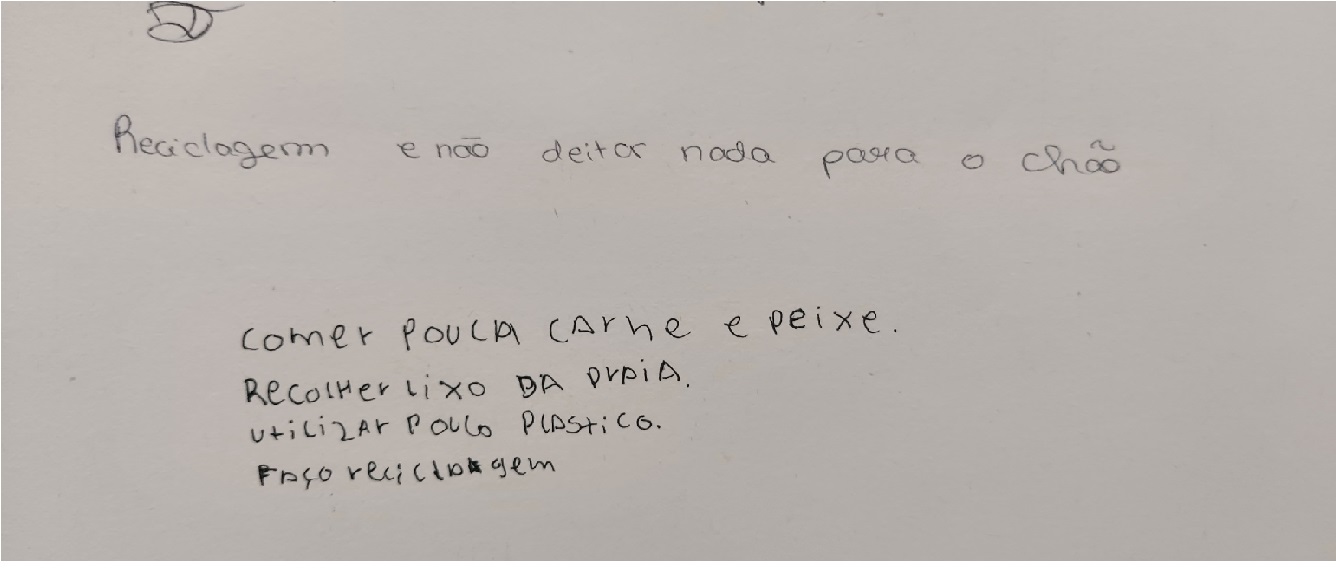 Reciclagem e não deitar nada para o chão
Comer pouca carne e peixe.
Recolher lixo da praia.
Utilizar pouco plastico.
Faço reciclagem